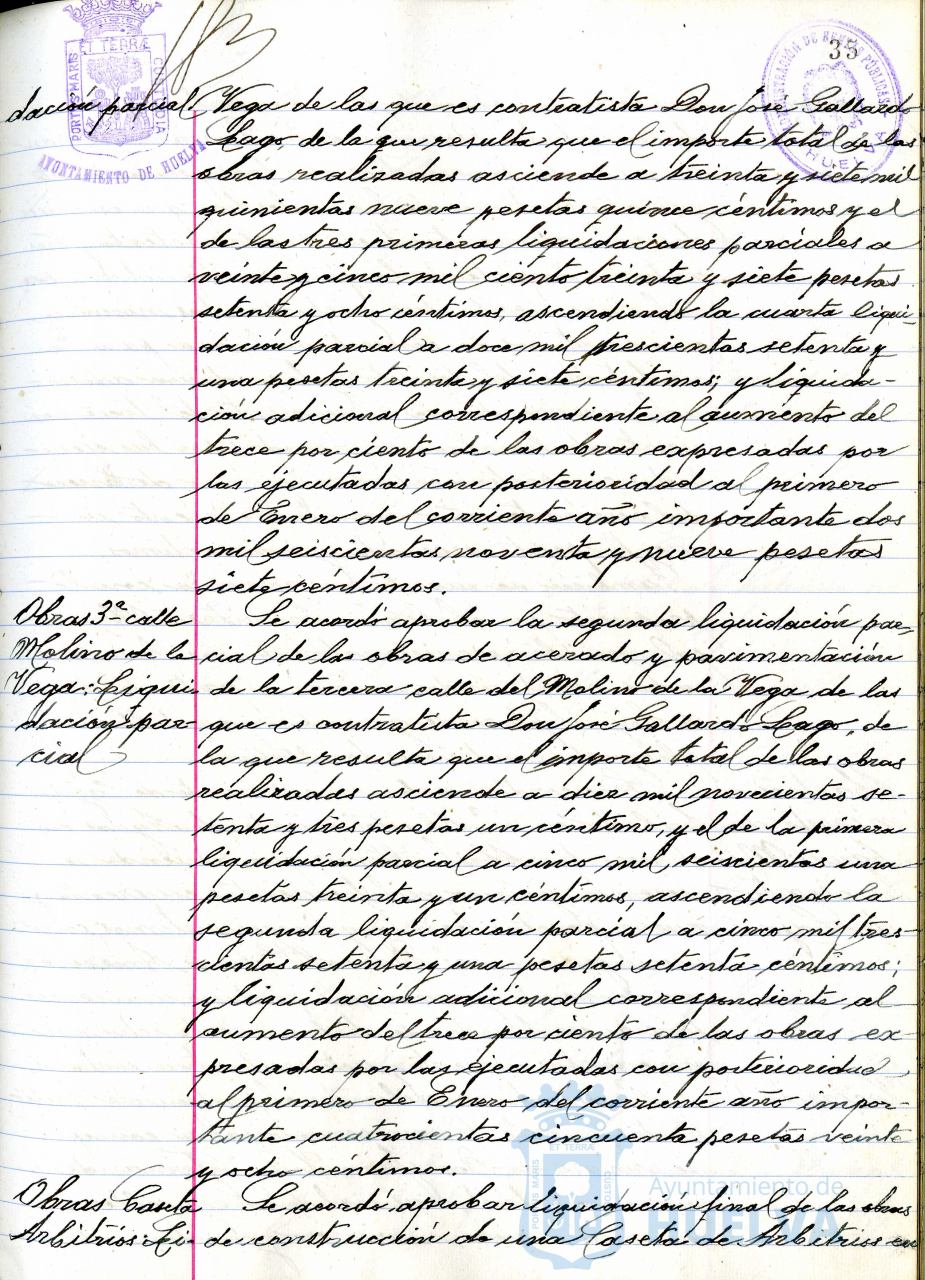 35
PORTUS MARIS ET TERRÆ CUSTODIA
AYUNTAMIENTO DE HUELVA
HUELVA
dación parcial
Vega de las que es contratista Don José Gallardo
Lago, de la que resulta que el importe total de las
obras realizadas asciende a treinta y siete mil
quinientas nueve pesetas quince céntimos y el
de las tres primeras liquidaciones parciales a
veinte y cinco mil ciento treinta y siete pesetas
setenta y ocho céntimos, ascendiendo la cuarta liqui-
dación parcial a doce mil trescientas setenta y
una pesetas treinta y siete céntimos; y liquida-
ción adicional correspondiente al aumento del
trece por ciento de las obras expresadas por
las ejecutadas con posterioridad al primero
de Enero del corriente año importante dos
mil seiscientas noventa y nueve pesetas
siete céntimos.
Obras 3ª calle
Molino de la
Vega: Liqui-
dación par-
cial
Se acordó aprobar la segunda liquidación par-
cial de las obras de acerado y pavimentación
de la tercera calle del Molino de la Vega de las
que es contratista Don José Gallardo Lago, de
la que resulta que el importe total de las obras
realizadas asciende a diez mil novecientas se-
tenta y tres pesetas un céntimo, y el de la primera
liquidación parcial a cinco mil seiscientas una
pesetas treinta y un céntimos, ascendiendo la
segunda liquidación parcial a cinco mil tres-
cientas setenta y una pesetas setenta céntimos;
y liquidación adicional correspondiente al
aumento del trece por ciento de las obras ex-
presadas por las ejecutadas con posterioridad
al primero de Enero del corriente año impor-
tante cuatrocientas cincuenta pesetas veinte
y ocho céntimos.
Obras Caseta
Arbitrios: Li-
Se acordó aprobar liquidación final de las obras
de construcción de una Caseta de Arbitrios en
Ayuntamiento de
HUELVA